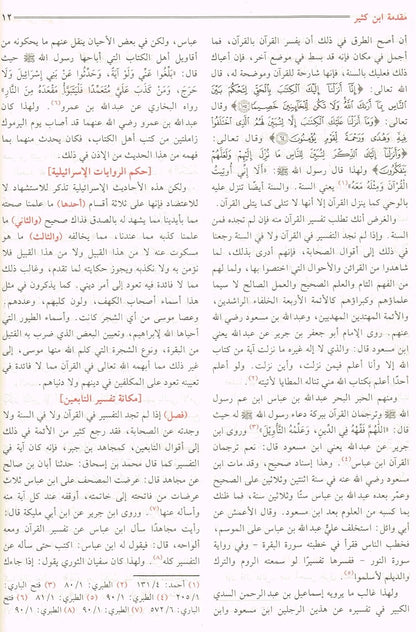 مقدمة ابن كثير
١٢
أن أصح الطرق في ذلك أن يفسر القرآن بالقرآن، فما
أجمل في مكان فإنه قد بسط في موضع آخر، فإن أعياك
ذلك فعليك بالسنة، فإنها شارحة للقرآن وموضحة له، قال
الله تعالى: ﴿إِنَّا أَنزَلْنَا إِلَيْكَ الْكِتَابَ بِالْحَقِّ لِتَحْكُمَ بَيْنَ
النَّاسِ بِمَا أَرَاكَ اللَّهُ وَلَا تَكُن لِّلْخَائِنِينَ خَصِيمًا﴾ وقال
تعالى: ﴿وَمَا أَنزَلْنَا عَلَيْكَ الْكِتَابَ إِلَّا لِتُبَيِّنَ لَهُمُ الَّذِي اخْتَلَفُوا
فِيهِ وَهُدًى وَرَحْمَةً لِّقَوْمٍ يُؤْمِنُونَ﴾ وقال تعالى:
﴿وَأَنزَلْنَا إِلَيْكَ الذِّكْرَ لِتُبَيِّنَ لِلنَّاسِ مَا نُزِّلَ إِلَيْهِمْ وَلَعَلَّهُمْ
يَتَفَكَّرُونَ﴾ ولهذا قال رسول الله ﷺ: «أَلَا إِنِّي أُوتِيتُ
الْقُرْآنَ وَمِثْلَهُ مَعَهُ»(١) يعني السنة. والسنة أيضًا تنزل عليه
بالوحي كما ينزل القرآن إلا أنها لا تتلى كما يتلى القرآن.
والغرض أنك تطلب تفسير القرآن منه فإن لم تجده فمن
السنة. وإذا لم نجد التفسير في القرآن ولا في السنة رجعنا
في ذلك إلى أقوال الصحابة، فإنهم أدرى بذلك، لما
شاهدوا من القرائن والأحوال التي اختصوا بها، ولما لهم
من الفهم التام والعلم الصحيح والعمل الصالح لا سيما
علماؤهم وكبراؤهم كالأئمة الأربعة الخلفاء الراشدين،
والأئمة المهتدين المهديين، وعبدالله بن مسعود رضي الله
عنهم. روى الإمام أبو جعفر بن جرير عن عبدالله يعني
ابن مسعود قال: والذي لا إله غيره ما نزلت آية من كتاب
الله إلا وأنا أعلم فيمن نزلت، وأين نزلت. ولو أعلم
أحدًا أعلم بكتاب الله مني تناله المطايا لأتيته(٢)
ومنهم الحبر البحر عبدالله بن عباس ابن عم رسول
الله ﷺ وترجمان القرآن ببركة دعاء رسول الله ﷺ له حيث
قال: «اللَّهُمَّ فَقِّهْهُ فِي الدِّينِ، وَعَلِّمْهُ التَّأْوِيلَ»(٣) وروى ابن
جرير عن عبدالله يعني ابن مسعود قال: نعم ترجمان
القرآن ابن عباس(٤). وهذا إسناد صحيح، وقد مات ابن
مسعود رضي الله عنه في سنة اثنتين وثلاثين على الصحيح
وعمّر بعده عبدالله بن عباس ستًّا وثلاثين سنة، فما ظنك
بما كسبه من العلوم بعد ابن مسعود. وقال الأعمش عن
أبي وائل: استخلف عليٌّ عبدالله بن عباس على الموسم،
فخطب الناس فقرأ في خطبته سورة البقرة - وفي رواية
سورة النور - ففسرها تفسيرًا لو سمعته الروم والترك
والديلم لأسلموا(٥)
ولهذا غالب ما يرويه إسماعيل بن عبد الرحمن السدي
الكبير في تفسيره عن هذين الرجلين ابن مسعود وابن
عباس، ولكن في بعض الأحيان ينقل عنهم ما يحكونه من
أقاويل أهل الكتاب التي أباحها رسول الله ﷺ حيث
قال: «بَلِّغُوا عَنِّي وَلَوْ آيَةً، وَحَدِّثُوا عَنْ بَنِي إِسْرَائِيلَ وَلَا
حَرَجَ، وَمَنْ كَذَبَ عَلَيَّ مُتَعَمِّدًا فَلْيَتَبَوَّأْ مَقْعَدَهُ مِنَ النَّارِ»
رواه البخاري عن عبدالله بن عمرو(٦). ولهذا كان
عبدالله بن عمرو رضي الله عنهما قد أصاب يوم اليرموك
زاملتين من كتب أهل الكتاب، فكان يحدث منهما بما
فهمه من هذا الحديث من الإذن في ذلك.
[حكم الروايات الإسرائيلية]
ولكن هذه الأحاديث الإسرائيلية تذكر للاستشهاد لا
للاعتضاد فإنها على ثلاثة أقسام (أحدها) ما علمنا صحته
مما بأيدينا مما يشهد له بالصدق فذاك صحيح (والثاني) ما
علمنا كذبه مما عندنا، مما يخالفه (والثالث) ما هو
مسكوت عنه لا من هذا القبيل ولا من هذا القبيل فلا
نؤمن به ولا نكذبه ويجوز حكايته لما تقدم، وغالب ذلك
مما لا فائدة فيه تعود إلى أمر ديني. كما يذكرون في مثل
هذا أسماء أصحاب الكهف، ولون كلبهم، وعددهم.
وعصا موسى من أي الشجر كانت. وأسماء الطيور التي
أحياها الله لإبراهيم، وتعيين البعض الذي ضرب به القتيل
من البقرة، ونوع الشجرة التي كلم الله منها موسى، إلى
غير ذلك مما أبهمه الله تعالى في القرآن مما لا فائدة في
تعيينه تعود على المكلفين في دينهم ولا دنياهم.
[مكانة تفسير التابعين]
(فصل) إذا لم تجد التفسير في القرآن ولا في السنة ولا
وجدته عن الصحابة، فقد رجع كثير من الأئمة في ذلك
إلى أقوال التابعين، كمجاهد بن جبر، فإنه كان آية في
التفسير كما قال محمد بن إسحاق: حدثنا أبان بن صالح
عن مجاهد قال: عرضت المصحف على ابن عباس ثلاث
عرضات من فاتحته إلى خاتمته، أوقفه عند كل آية منه
وأسأله عنها(٧). وروى ابن جرير عن ابن أبي مليكة قال:
رأيت مجاهدًا سأل ابن عباس عن تفسير القرآن ومعه
ألواحه، قال: فيقول له ابن عباس: اكتب حتى سأله عن
التفسير كله(٨). ولهذا كان سفيان الثوري يقول: إذا جاءك
(١) أحمد: ١٣١/٤ (٢) الطبري: ٨٠/١ (٣) فتح الباري:
٢٠٥/١ (٤) الطبري: ٩٠/١ (٥) الطبري: ٨١/١ (٦) فتح
الباري: ٥٧٢/٦ (٧) الطبري: ٩٠/١ (٨) الطبري: ٩٠/١